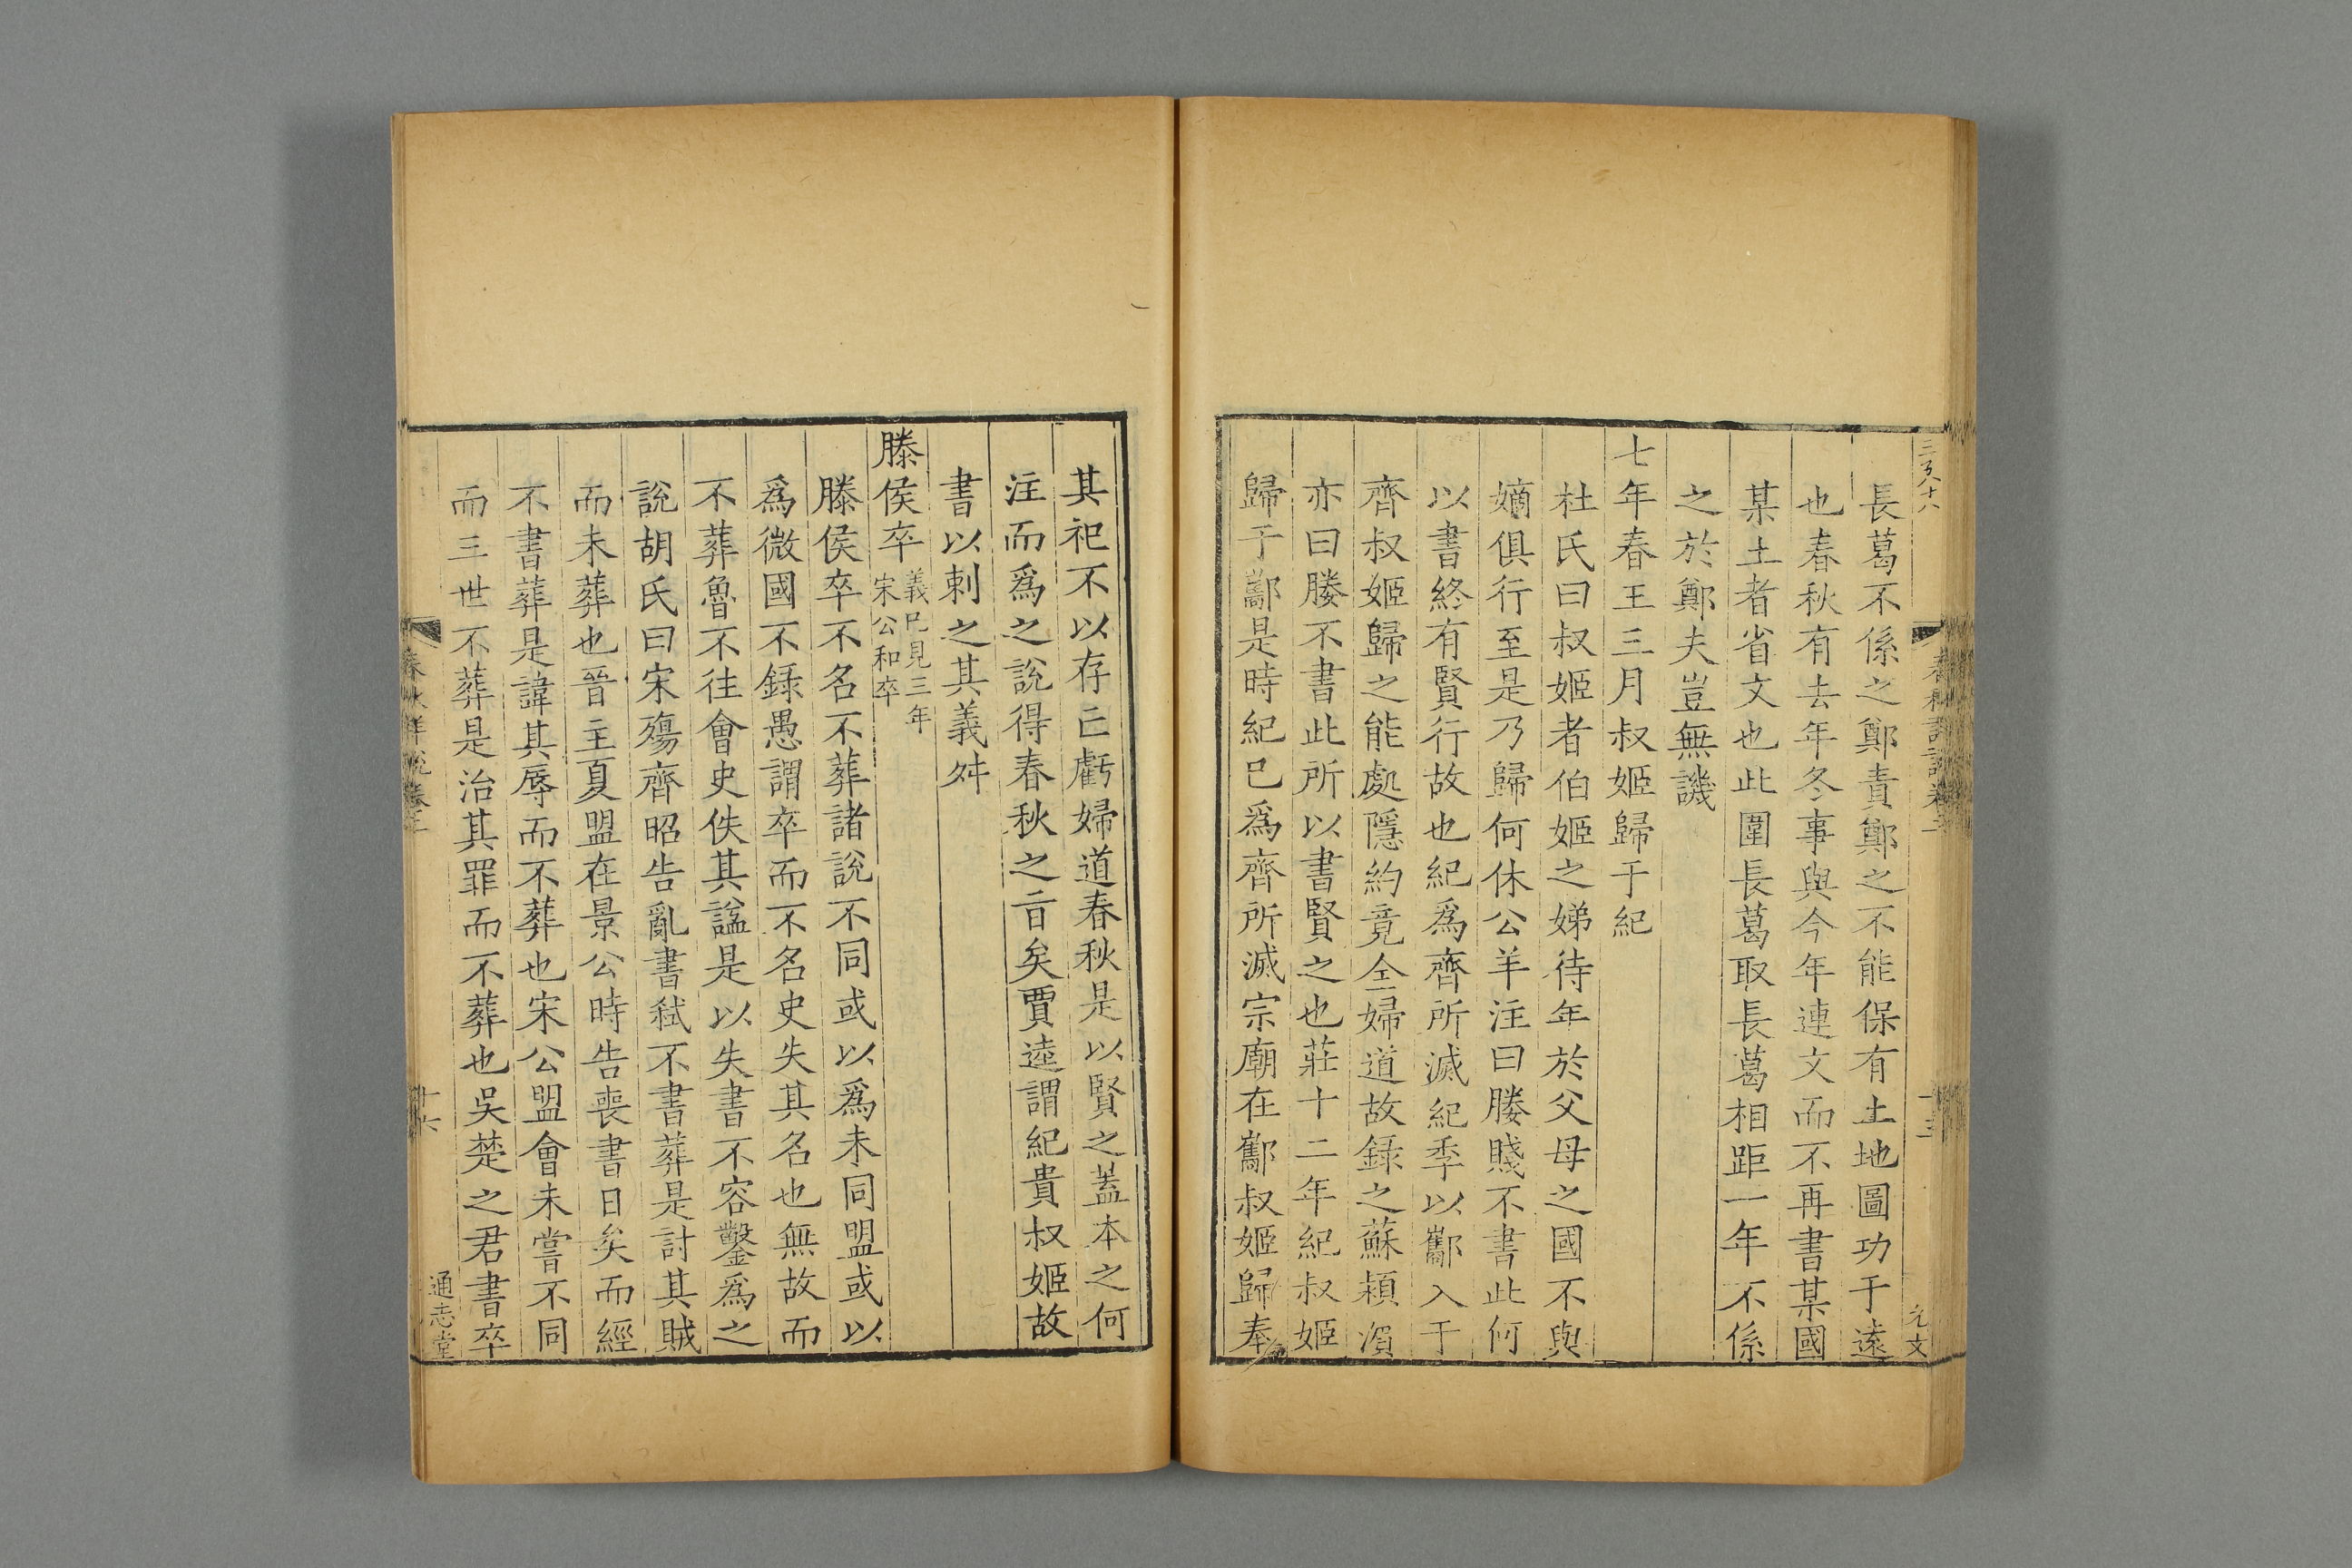 長葛不係之鄭責鄭之不能保有土地圖功于遠
也春秋有去年冬事與今年連文而不再書某國
某土者省文也此圍長葛取長葛相距一年不係
之於鄭夫豈無譏
七年春王三月叔姬歸于紀
杜氏曰叔姬者伯姬之娣待年於父母之國不與
嫡俱行至是乃歸何休公羊注曰媵賤不書此何
以書終有賢行故也紀為齊所滅紀季以酅入于
齊叔姬歸之能處隱約竟全婦道故錄之蘇穎濵
亦曰媵不書此所以書賢之也莊十二年紀叔姬
歸于酅是時紀已為齊所滅宗廟在酅叔姬歸奉
其祀不以存亡虧婦道春秋是以賢之蓋本之何
注而為之說得春秋之㫖矣賈逵謂紀貴叔姬故
書以刺之其義舛
滕侯卒義已見三年宋公和卒
滕侯卒不名不葬諸說不同或以為未同盟或以
為微國不錄愚謂卒而不名史失其名也無故而
不葬魯不往會史佚其諡是以失書不容鑿為之
說胡氏曰宋殤齊昭告亂書弒不書葬是討其賊
而未葬也晉主夏盟在景公時告喪書日矣而經
不書葬是諱其辱而不葬也宋公盟會未嘗不同
而三世不葬是治其罪而不葬也吳楚之君書卒
通志堂